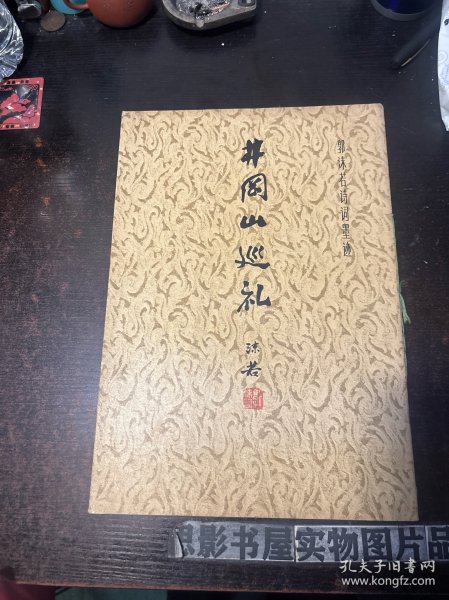 郭沫若诗词墨迹
井岡山巡礼
沫若
思影書屋实物图片品
孔夫子旧书网
www.kongfz.com